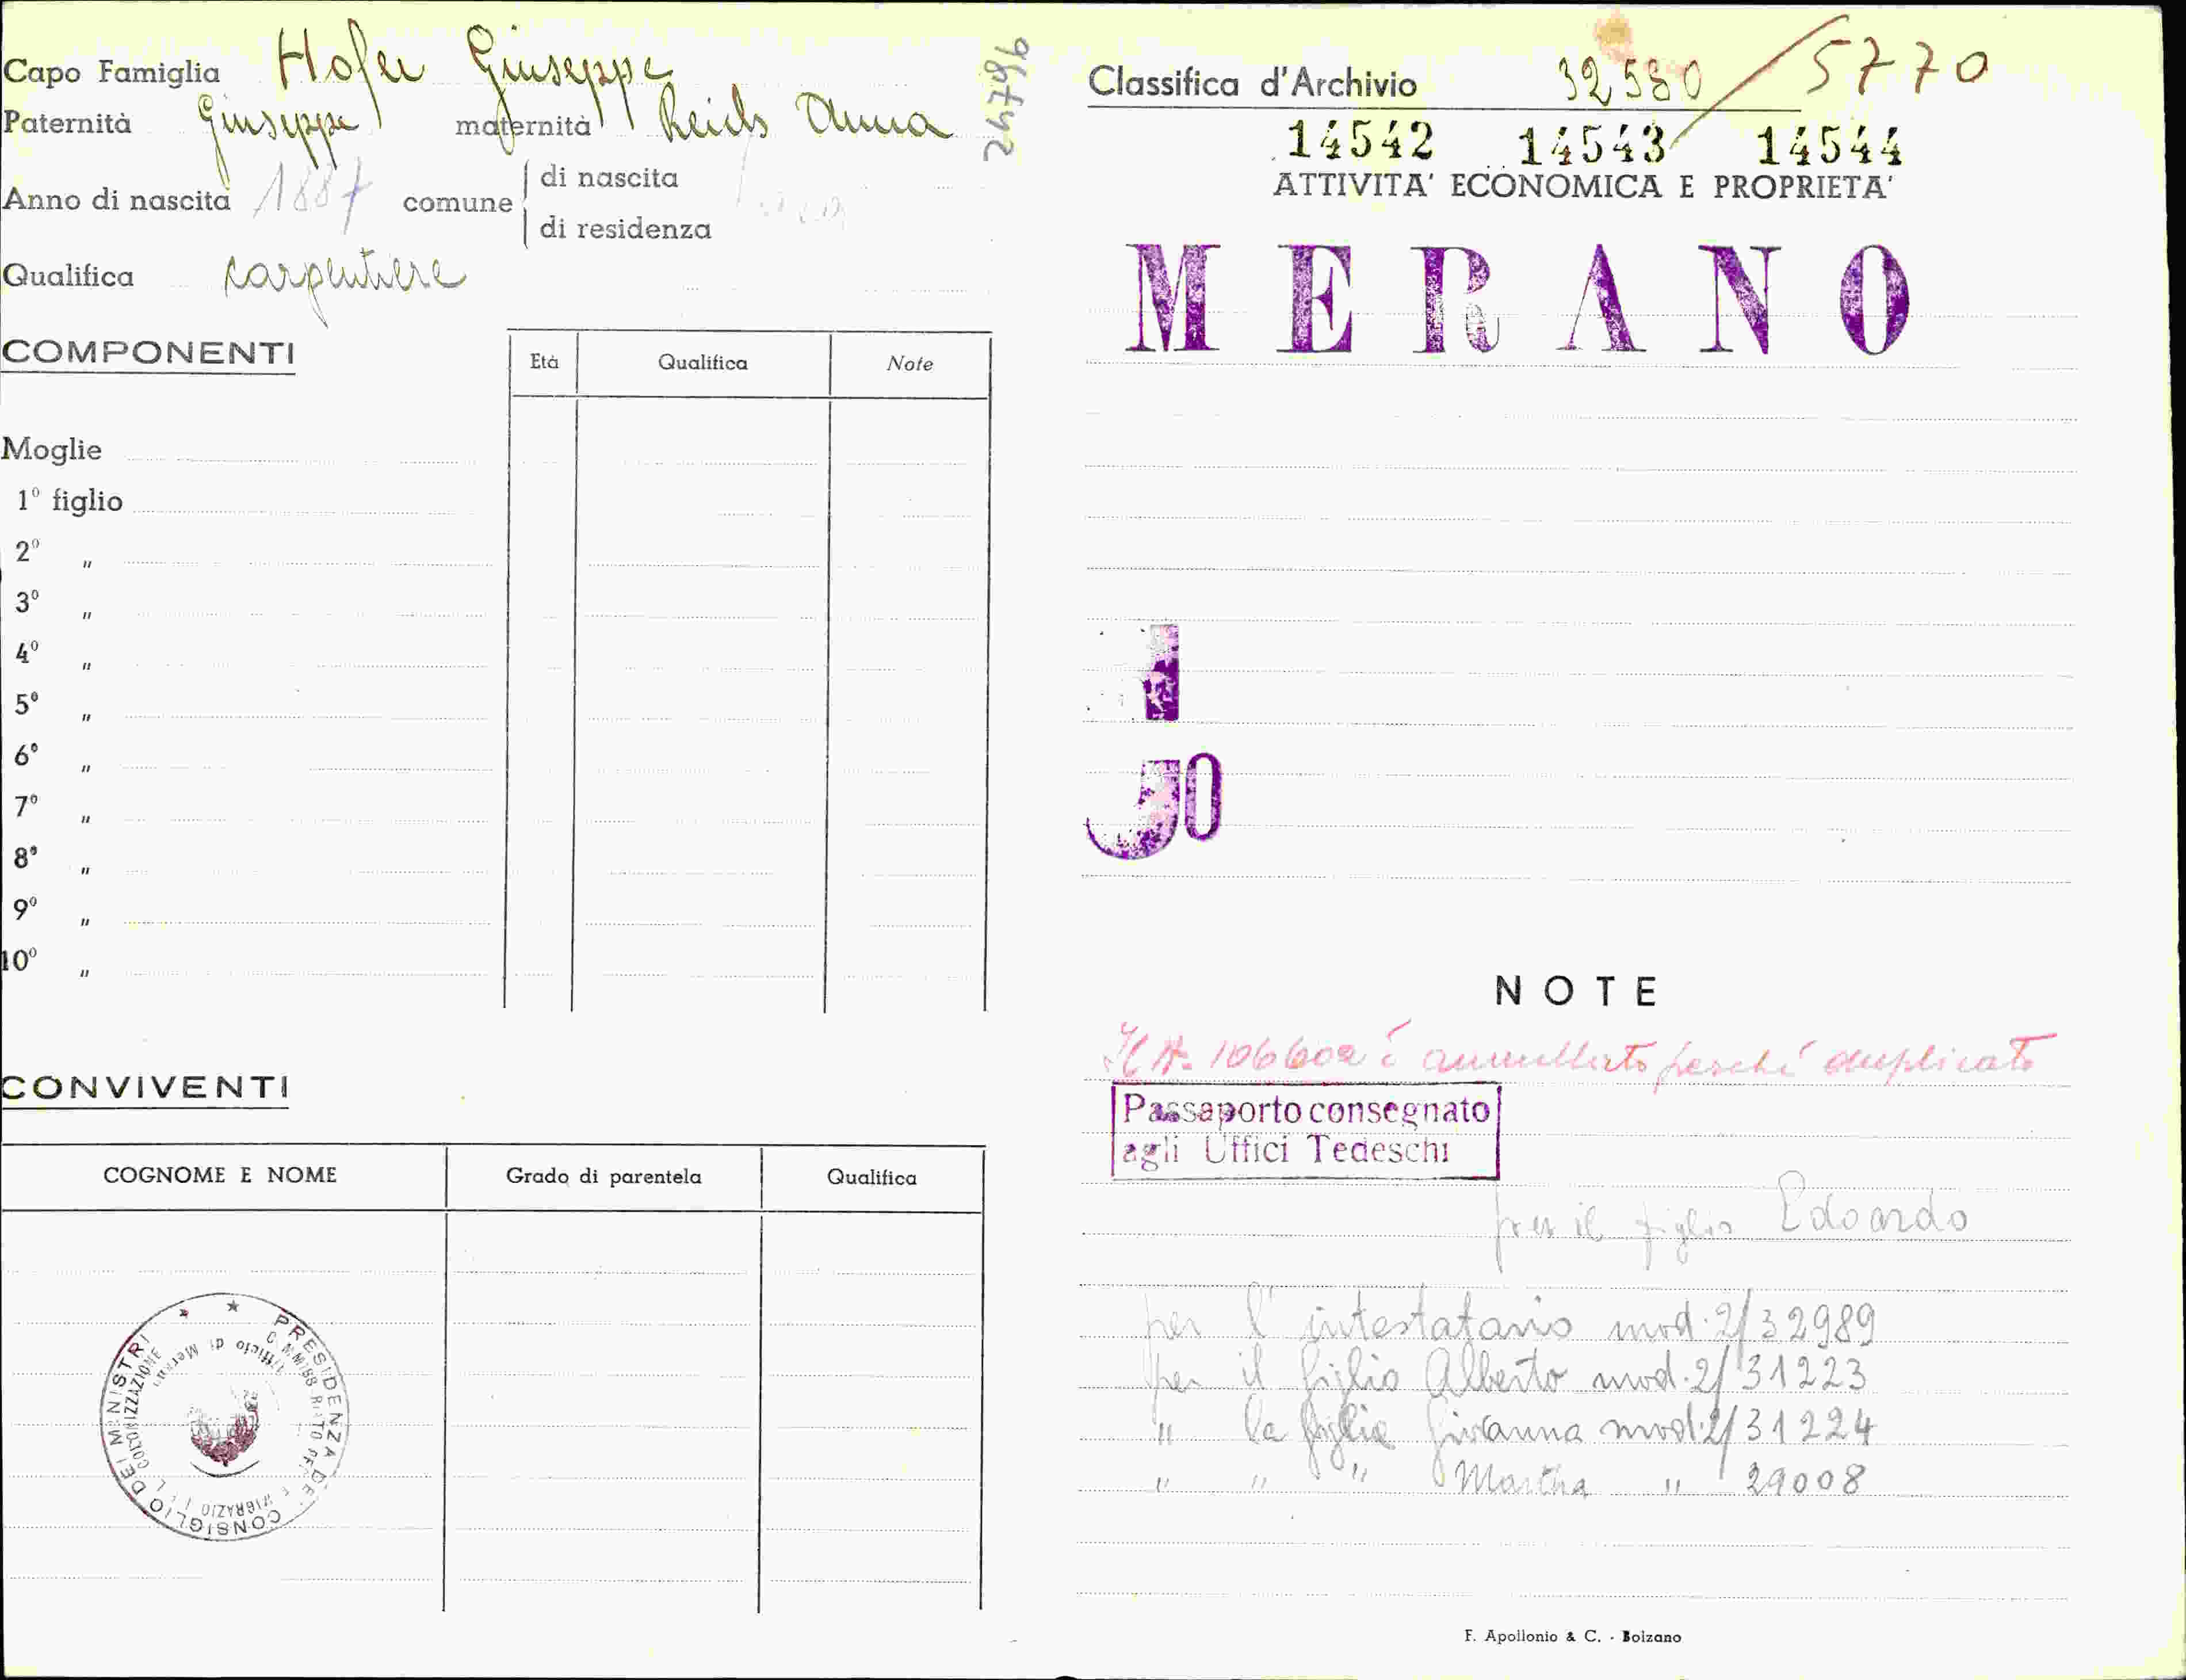 Capo Famiglia Hofer Giuseppe
Paternità Giuseppe maternità Reich Anna
247796
Anno di nascita 1887 comune di nascita
di residenza
Qualifica carpentiere
COMPONENTI
Età Qualifica Note
Moglie
1º figlio
2º "
3º "
4º "
5º "
6º "
7º "
8º "
9º "
10º "
CONVIVENTI
COGNOME E NOME Grado di parentela Qualifica
PRESIDENZA DEL CONSIGLIO DEI MINISTRI
Ufficio di Merano
Classifica d'Archivio 32580 / 5770
14542 14543 14544
ATTIVITA' ECONOMICA E PROPRIETA'
MERANO
NOTE
106602 è annullato perché duplicato
Passaporto consegnato
agli Uffici Tedeschi
per il figlio Edoardo
per l'intestatario mod. 2/32989
per il figlio Alberto mod. 2/31223
" la figlia Giovanna mod. 2/31224
" " " Martha " 29008
F. Apollonio & C. - Bolzano